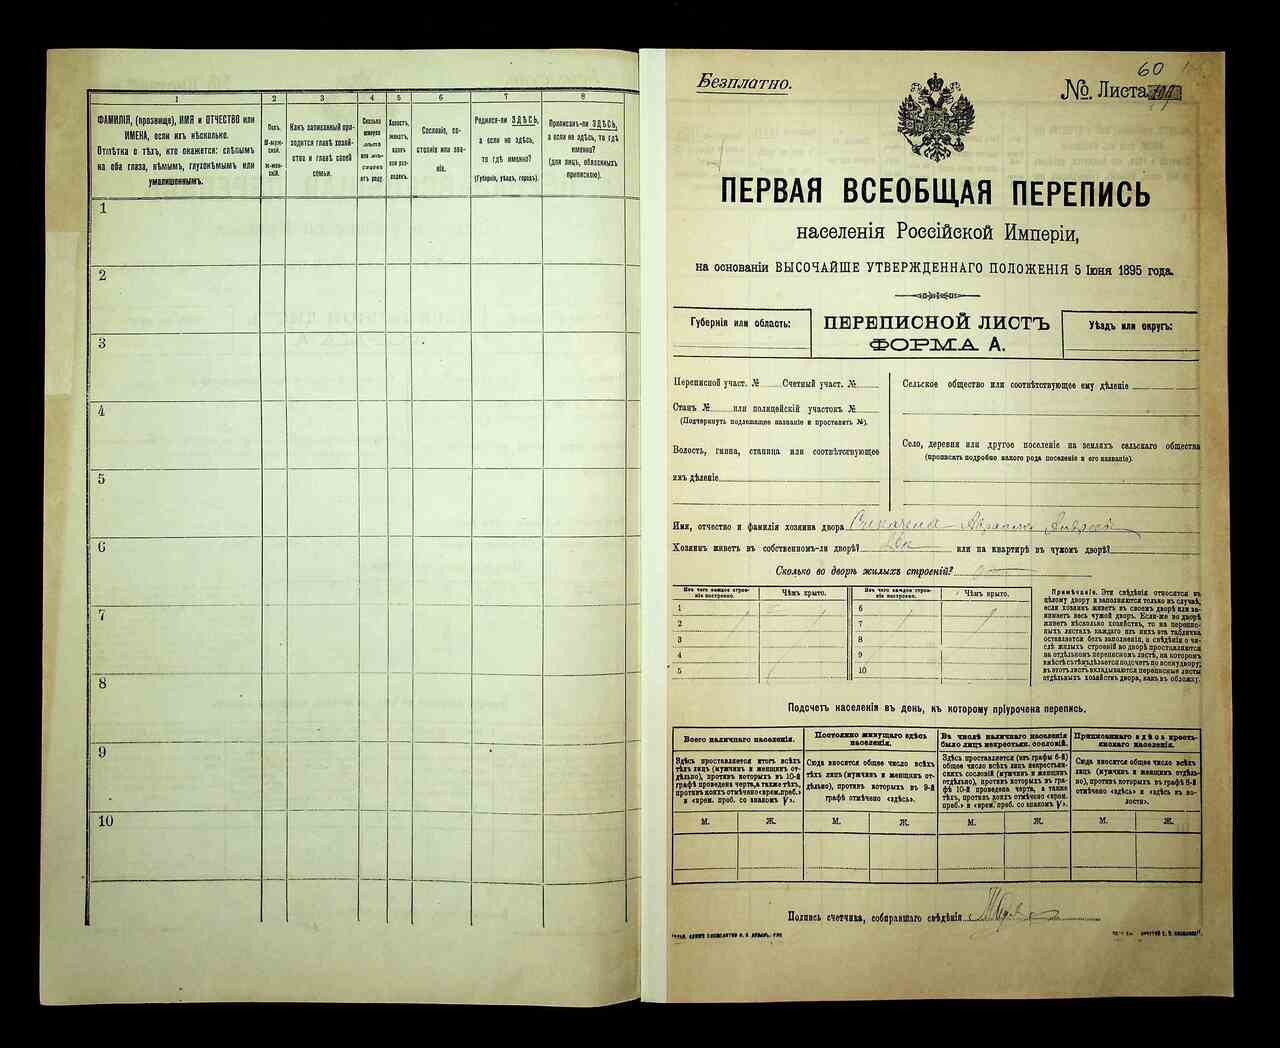 1
2
3
4
5
6
7
8
ФАМИЛІЯ, (прозвище), ИМЯ и ОТЧЕСТВО или
ИМЕНА, если ихъ нѣсколько.
Отмѣтка о тѣхъ, кто окажется: слѣпымъ
на оба глаза, нѣмымъ, глухонѣмымъ или
умалишеннымъ.
Полъ.
М-муж-
ской.
Ж-жен-
скій.
Какъ записанный при-
ходится главѣ хозяй-
ства и главѣ своей
семьи.
Сколько
минуло
лѣтъ
или мѣ-
сяцевъ
отъ роду.
Холостъ,
женатъ,
вдовъ
или раз-
веденъ.
Сословіе, со-
стояніе или зва-
ніе.
Родился-ли ЗДѢСЬ,
а если не здѣсь,
то гдѣ именно?
(Губернія, уѣздъ, городъ).
Приписанъ-ли ЗДѢСЬ,
а если не здѣсь, то гдѣ
именно?
(для лицъ, обязанныхъ
припискою).
1
2
3
4
5
6
7
8
9
10
Безплатно.
60
№ Листа
ПЕРВАЯ ВСЕОБЩАЯ ПЕРЕПИСЬ
населенія Россійской Имперіи,
на основаніи ВЫСОЧАЙШЕ УТВЕРЖДЕННАГО ПОЛОЖЕНІЯ 5 Іюня 1895 года.
Губернія или область:
ПЕРЕПИСНОЙ ЛИСТЪ
ФОРМА А.
Уѣздъ или округъ:
Переписной участ. № Счетный участ. №
Станъ № или полицейскій участокъ №
(Подчеркнуть подлежащее названіе и проставить №).
Волость, гмина, станица или соотвѣтствующее
имъ дѣленіе
Сельское общество или соотвѣтствующее ему дѣленіе
Село, деревня или другое поселеніе на земляхъ сельскаго общества
(прописать подробно какого рода поселеніе и его названіе).
Имя, отчество и фамилія хозяина двора
Хозяинъ живетъ въ собственномъ-ли дворѣ? или на квартирѣ въ чужомъ дворѣ?
Сколько во дворѣ жилыхъ строеній?
Изъ чего каждое строе-
ніе построено.
Чѣмъ крыто.
Изъ чего каждое строе-
ніе построено.
Чѣмъ крыто.
1
2
3
4
5
6
7
8
9
10
Примѣчаніе. Эти свѣдѣнія относятся къ
цѣлому двору и заполняются только въ случаѣ,
если хозяинъ живетъ въ своемъ дворѣ или за-
нимаетъ весь чужой дворъ. Если-же во дворѣ
живетъ нѣсколько хозяйствъ, то на перепис-
ныхъ листахъ каждаго изъ нихъ эта табличка
оставляется безъ заполненія, а свѣдѣнія о чи-
слѣ жилыхъ строеній во дворѣ проставляются
на отдѣльномъ переписномъ листѣ, на которомъ
вмѣстѣ съ тѣмъ дѣлается подсчетъ по всему двору;
въ этотъ листъ вкладываются переписные листы
отдѣльныхъ хозяйствъ двора, какъ въ обложку.
Подсчетъ населенія въ день, къ которому пріурочена перепись.
Всего наличнаго населенія.
Здѣсь проставляется итогъ всѣхъ
тѣхъ лицъ (мужчинъ и женщинъ от-
дѣльно), противъ которыхъ въ 10-й
графѣ проведена черта, а также тѣхъ,
противъ коихъ отмѣчено «врем. преб.»
и «врем. преб. со знакомъ V».
Постоянно живущаго здѣсь
населенія.
Сюда вносится общее число всѣхъ
тѣхъ лицъ (мужчинъ и женщинъ от-
дѣльно), противъ которыхъ въ 9-й
графѣ отмѣчено «здѣсь».
Въ числѣ наличнаго населенія
было лицъ некрестьян. сословій.
Здѣсь проставляется (изъ графы 6-й)
общее число всѣхъ лицъ некрестьян-
скихъ сословій (мужчинъ и женщинъ
отдѣльно), противъ которыхъ въ гра-
фѣ 10-й проведена черта, а также
тѣхъ, противъ коихъ отмѣчено «врем.
преб.» и «врем. преб. со знакомъ V».
Приписаннаго здѣсь кресть-
янскаго населенія.
Сюда вносится общее число всѣхъ
лицъ (мужчинъ и женщинъ отдѣль-
но), противъ которыхъ въ графѣ 8-й
отмѣчено «здѣсь» и «здѣсь въ во-
лости».
М. Ж. М. Ж. М. Ж. М. Ж.
Подпись счетчика, собиравшаго свѣдѣнія